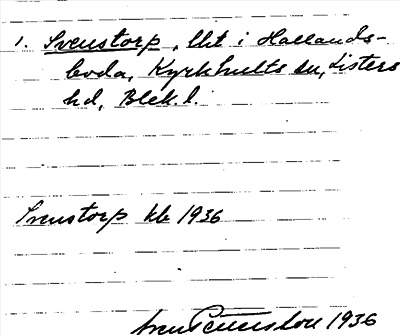 1. Svenstorp, lht i Hallands-
boda, Kyrkhults sn, Listers
hd, Blek. l.
Svenstorp kb 1936
1936